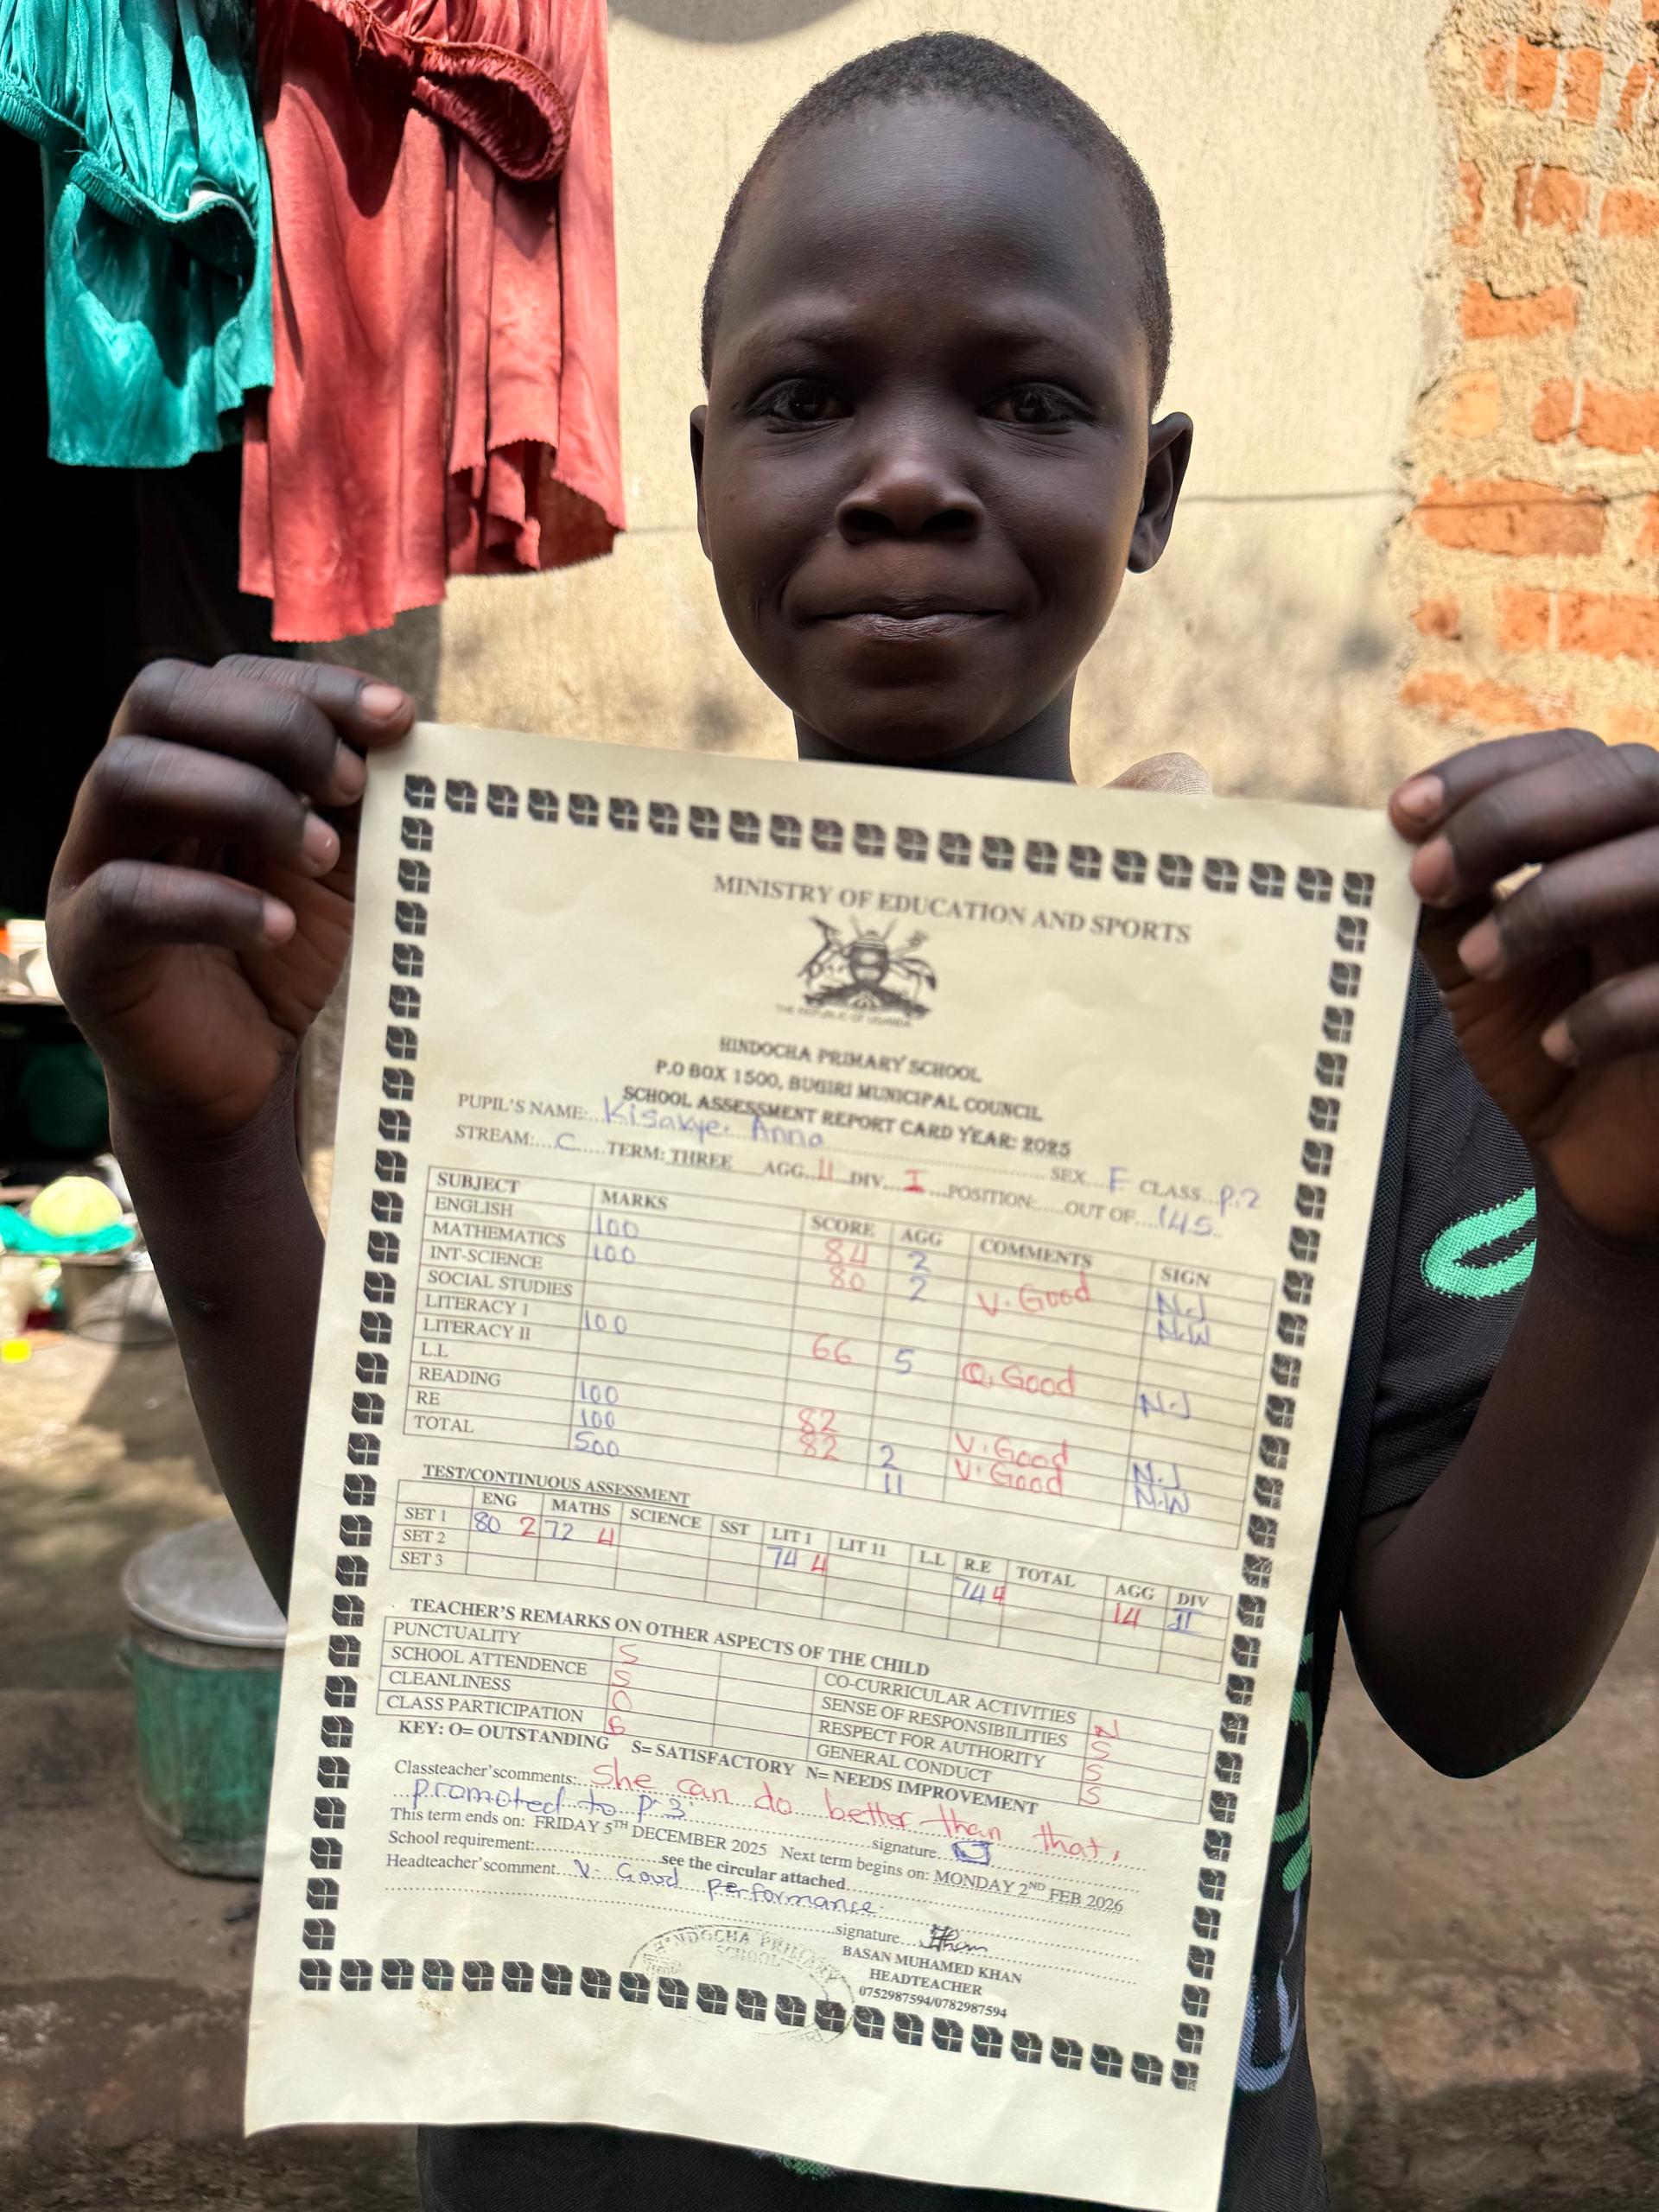 MINISTRY OF EDUCATION AND SPORTS
THE REPUBLIC OF UGANDA
HINDOCHA PRIMARY SCHOOL
P.O BOX 1500, BUGIRI MUNICIPAL COUNCIL
SCHOOL ASSESSMENT REPORT CARD YEAR: 2025
PUPIL'S NAME: Kisakye Anna SEX F CLASS P.2
STREAM: C TERM: THREE AGG 11 DIV I POSITION: OUT OF 145
SUBJECT MARKS SCORE AGG COMMENTS SIGN
ENGLISH 100 84 2 V. Good N.J
MATHEMATICS 100 80 2 N.W
INT-SCIENCE
SOCIAL STUDIES
LITERACY I 100 66 5 Q. Good N.J
LITERACY II
L.L
READING 100 82 V. Good N.J
RE 100 82 2 V. Good N.W
TOTAL 500 11
TEST/CONTINUOUS ASSESSMENT
ENG MATHS SCIENCE SST LIT 1 LIT 11 L.L R.E TOTAL AGG DIV
SET 1 80 2 72 4 74 4 74 4 14 II
SET 2
SET 3
TEACHER'S REMARKS ON OTHER ASPECTS OF THE CHILD
PUNCTUALITY S CO-CURRICULAR ACTIVITIES N
SCHOOL ATTENDENCE S SENSE OF RESPONSIBILITIES S
CLEANLINESS O RESPECT FOR AUTHORITY S
CLASS PARTICIPATION GENERAL CONDUCT S
KEY: O= OUTSTANDING S= SATISFACTORY N= NEEDS IMPROVEMENT
Classteacher'scomments: She can do better than that,
promoted to p.3 signature
This term ends on: FRIDAY 5TH DECEMBER 2025 Next term begins on: MONDAY 2ND FEB 2026
School requirement: see the circular attached
Headteacher'scomment. V. Good performance.
signature
BASAN MUHAMED KHAN
HEADTEACHER
0752987594/0782987594
HINDOCHA PRIMARY
SCHOOL